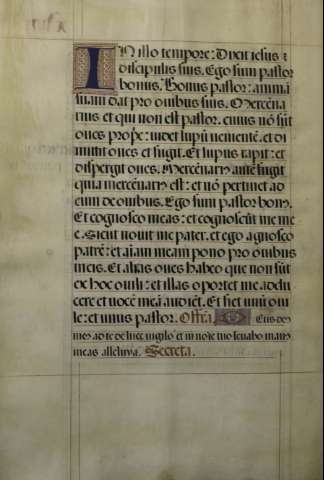 IN illo tempore: Dixit iesus
discipulis suis. Ego sum pastor
bonus. Bonus pastor: animã
suam dat pro ovibus suis. Mercena
rius et qui non est pastor. cuius nõ sũt
oves propẽ: videt lupũ venientẽ. et di
mittit oves et fugit. Et lupus rapit: et
dispergit oves. Mercenari autẽ fugit
quia mercenari est: et nõ pertinet ad
eum de ovibus. Ego sum pastor bon.
Et cognosco meas: et cognoscũt me me
e. Sicut novit me pater. et ego agnosco
patrẽ: et aiam meam pono pro ovibus
meis. Et alias oves habeo que non sũt
ex hoc ovili: et illas oportet me addu
cere et vocẽ meã audiẽt. Et fiet unũ ovi
le: et unus pastor. Offã. Deus de
meus ad te de luce vigilo: et in noĩe tuo levabo man
meas alleluya. Secreta.